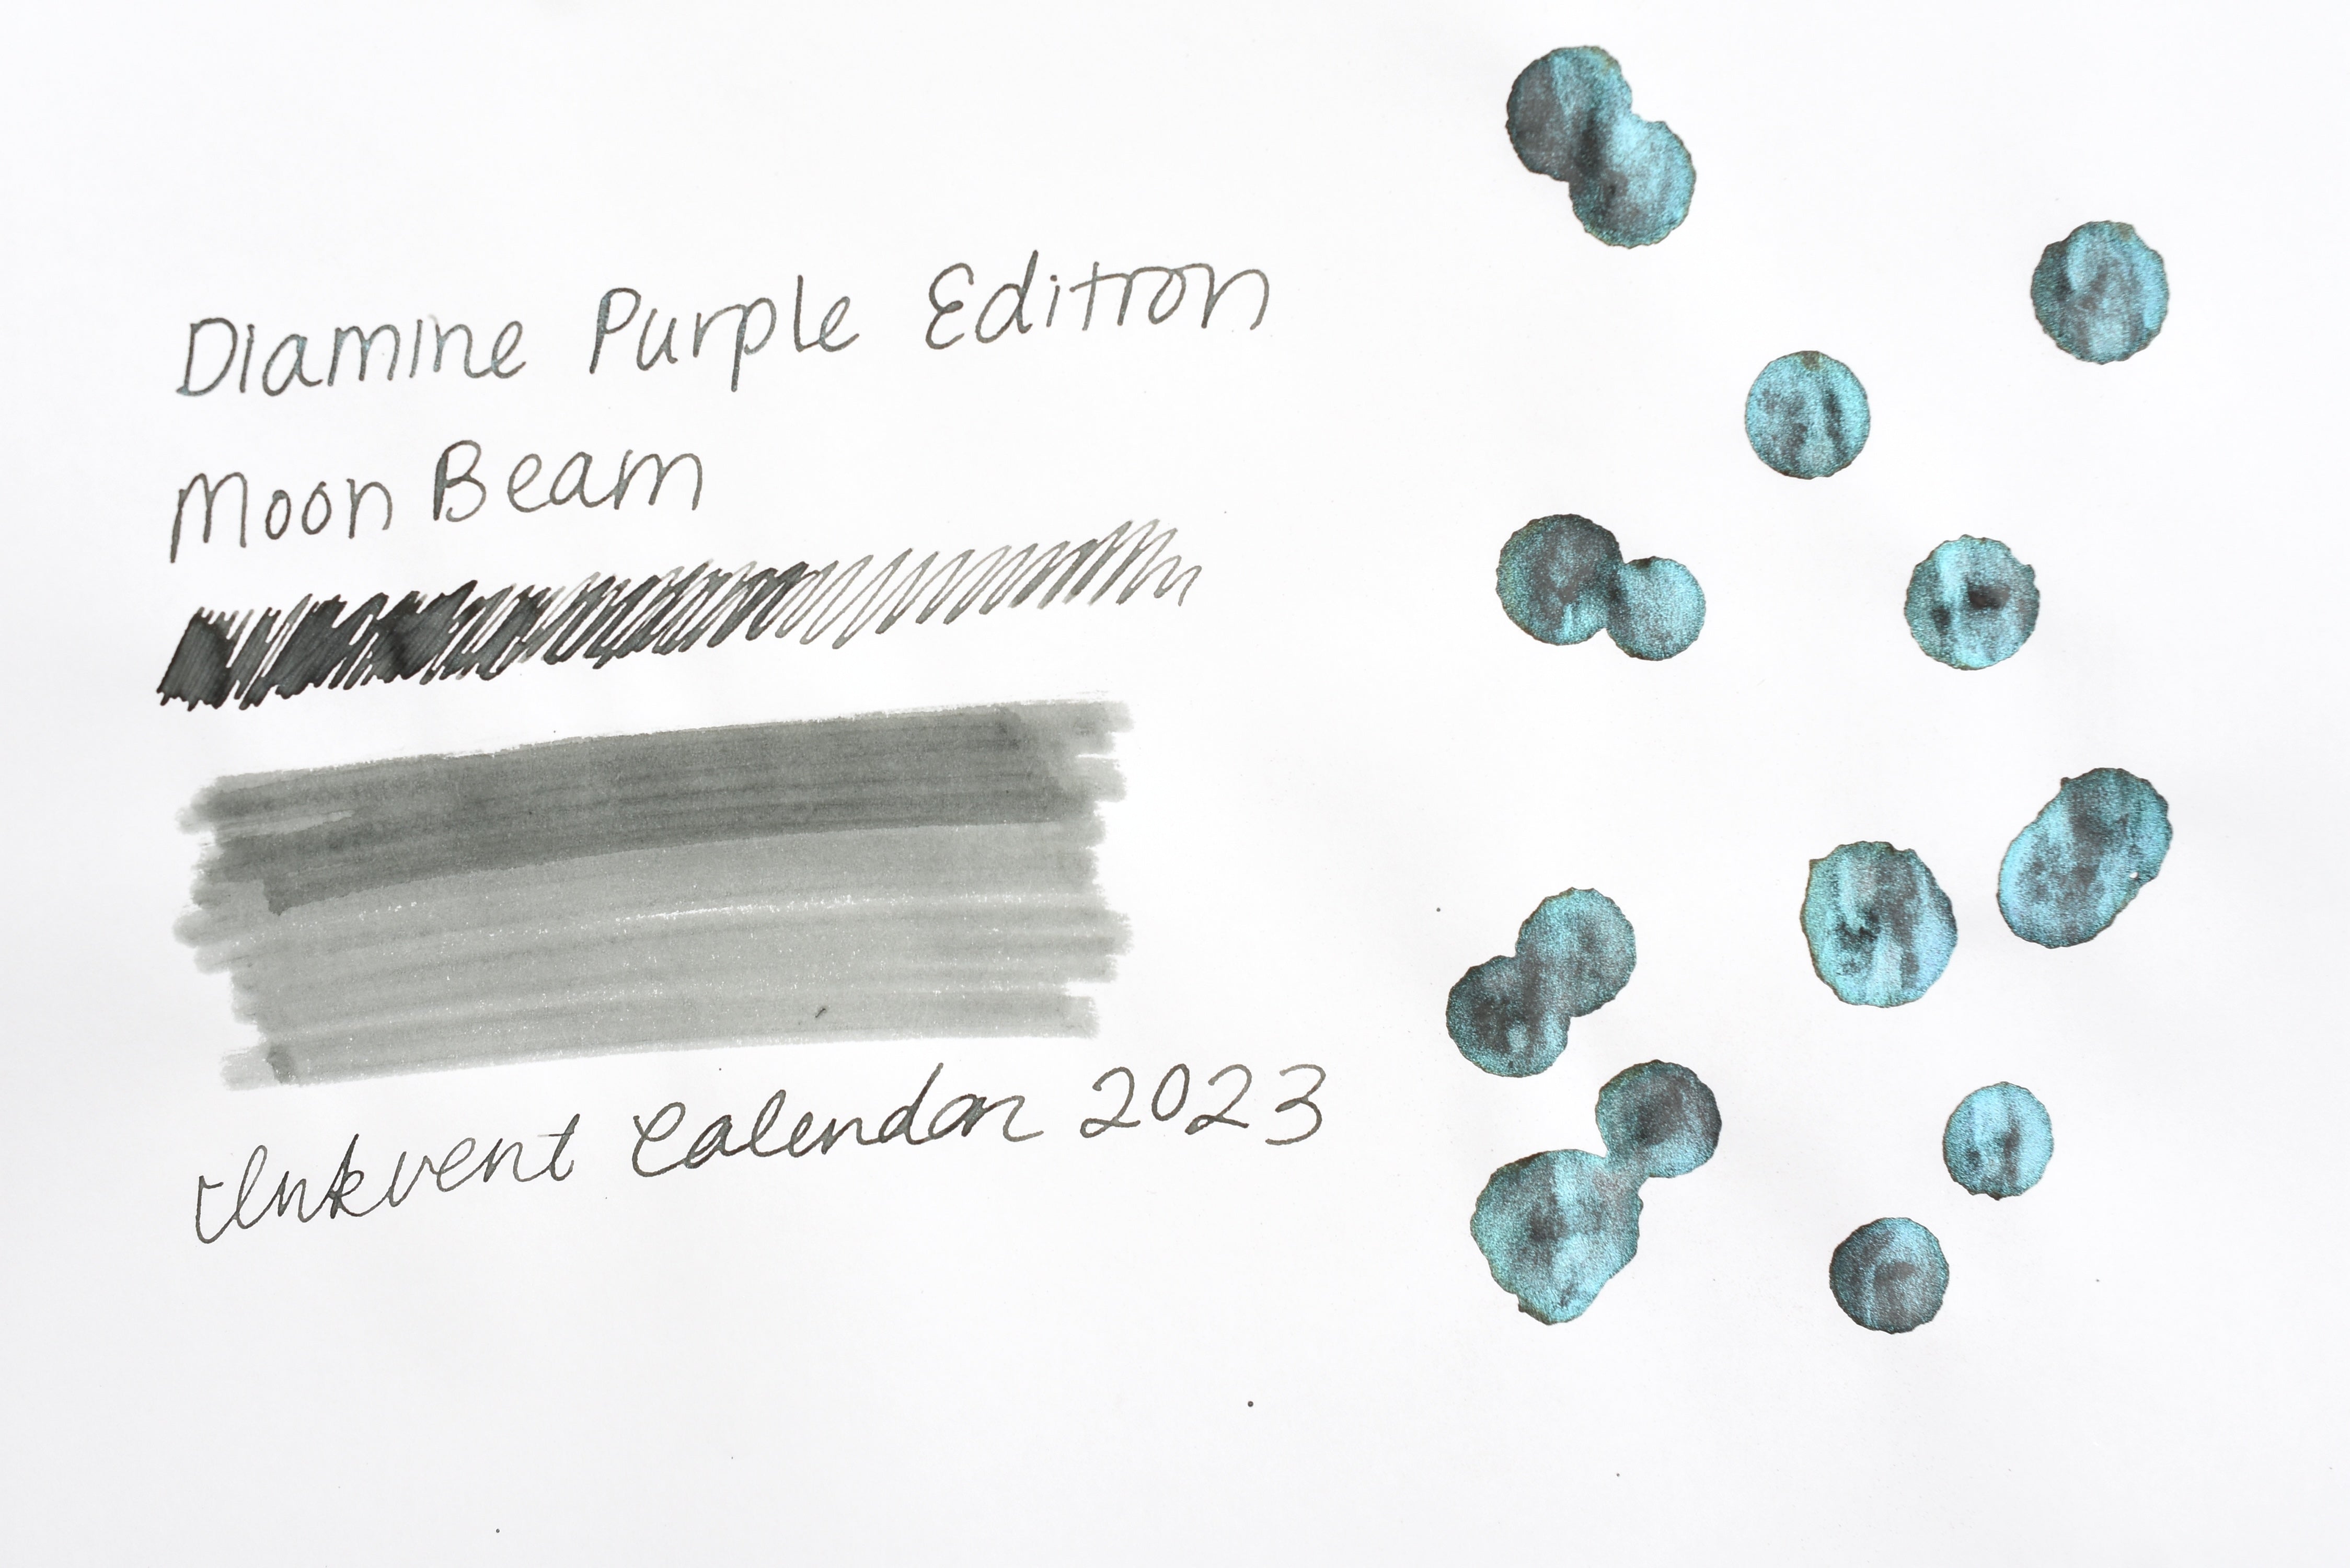 Diamine Purple Edition
Moon Beam
Inkvent Calendar 2023